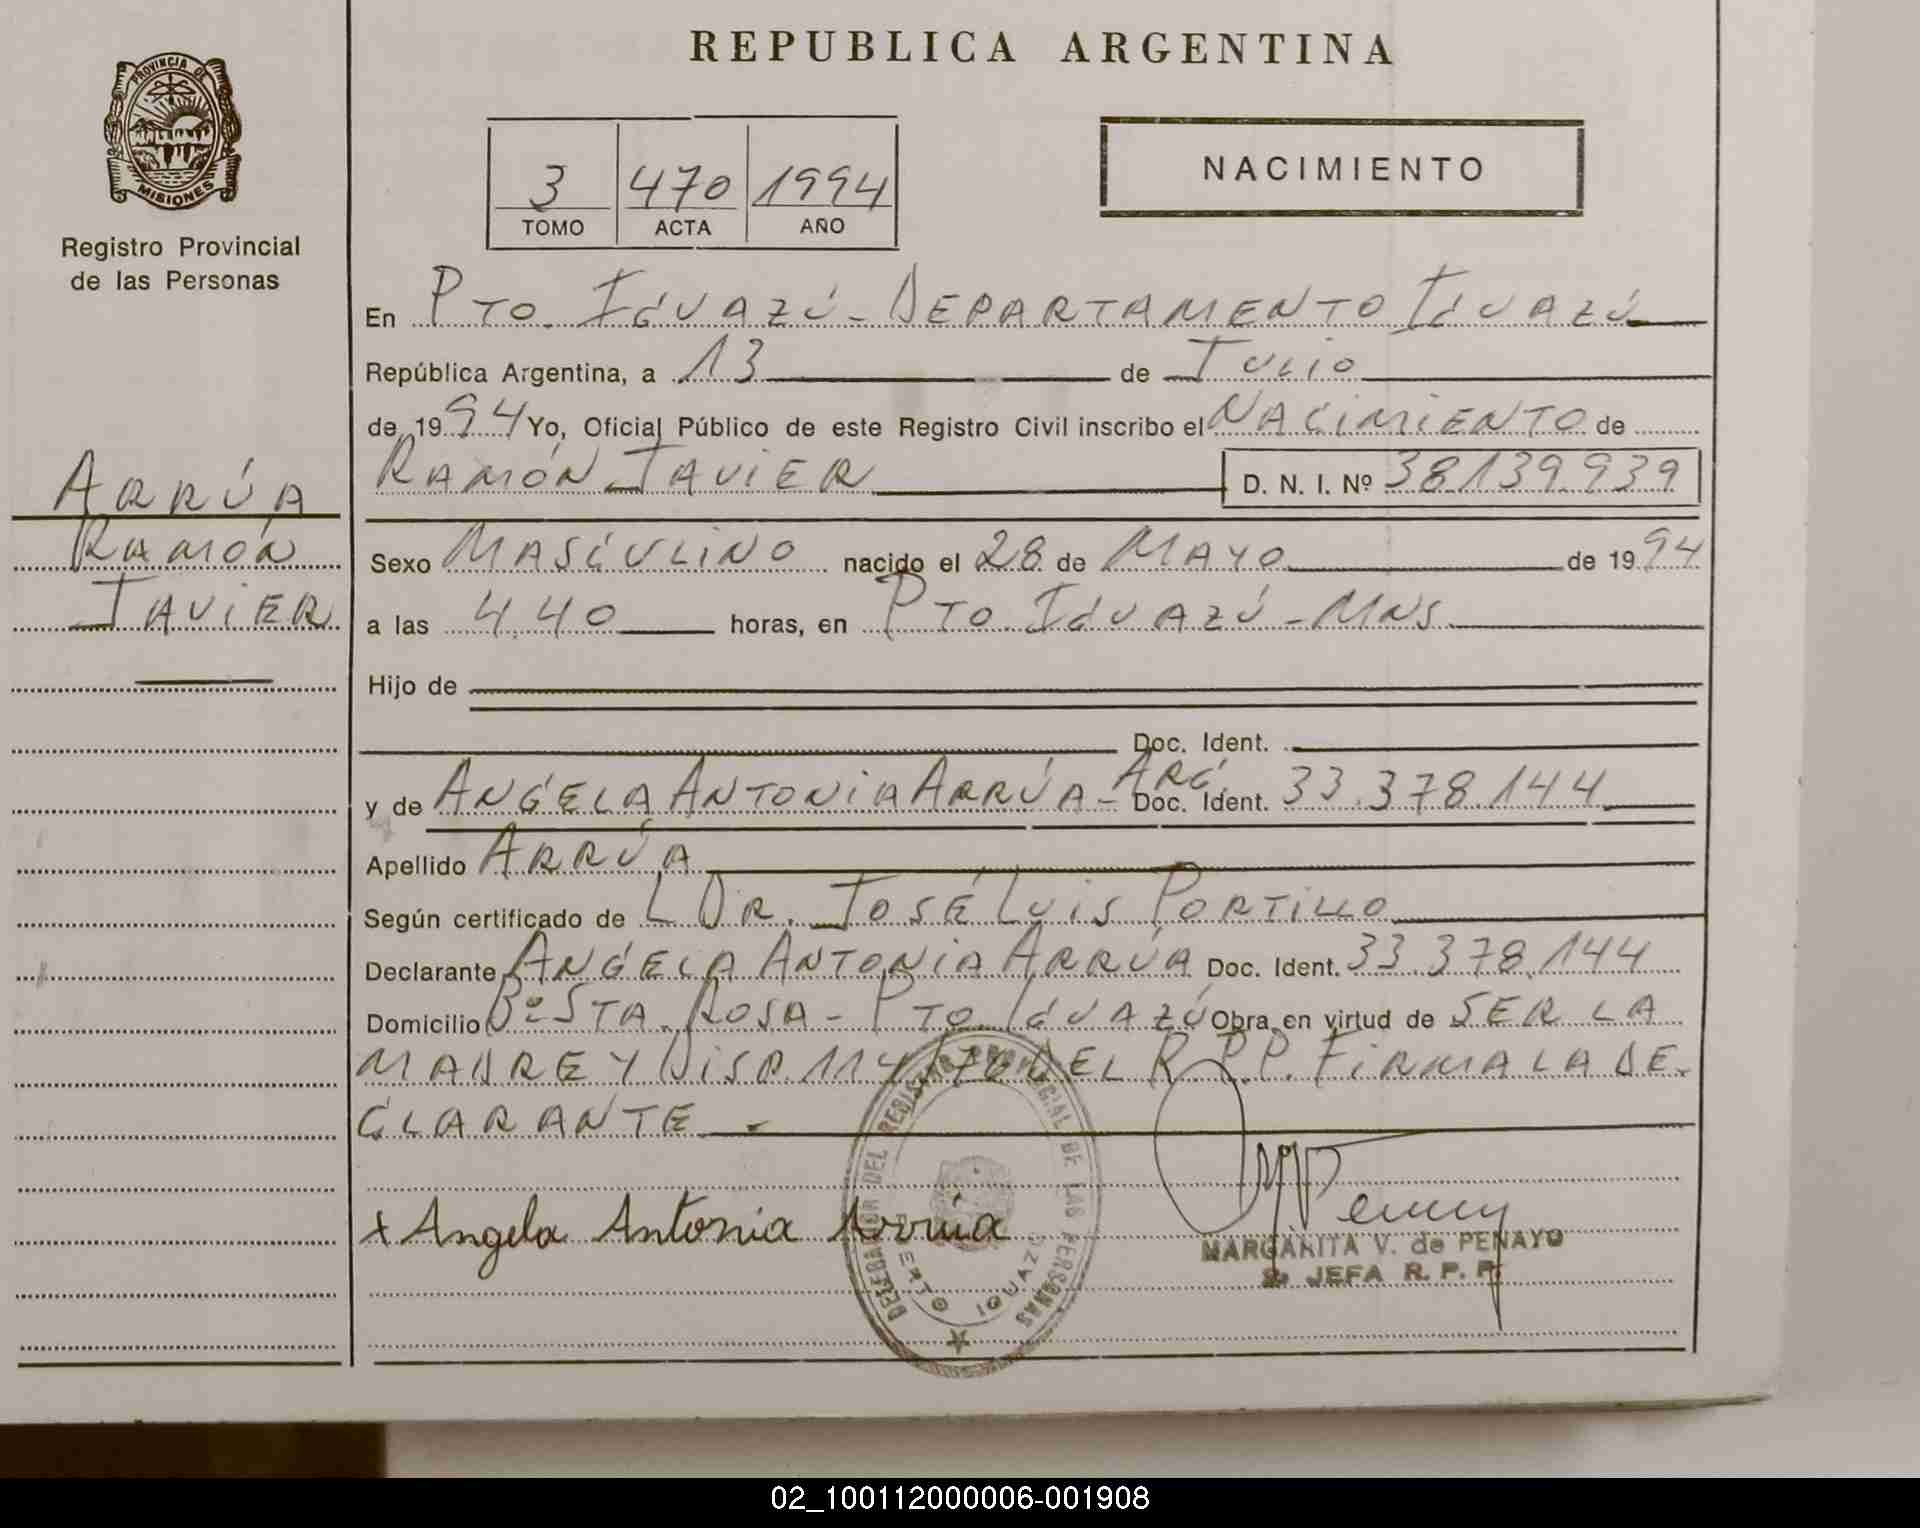 REPUBLICA ARGENTINA
PROVINCIA DE
MISIONES
Registro Provincial
de las Personas
3 470 1994
TOMO ACTA AÑO
NACIMIENTO
En PTO. IGUAZÚ - DEPARTAMENTO IGUAZÚ
República Argentina, a 13 de JULIO
de 1994 Yo, Oficial Público de este Registro Civil inscribo el NACIMIENTO de
RAMÓN JAVIER D. N. I. Nº 38.139.939
ARRÚA
RAMÓN
JAVIER
Sexo MASCULINO nacido el 28 de MAYO de 1994
a las 4.40 horas, en PTO. IGUAZÚ - MNS.
Hijo de
Doc. Ident.
y de ANGELA ANTONIA ARRÚA - ARG. Doc. Ident. 33.378.144
Apellido ARRÚA
Según certificado de L DR. JOSÉ LUIS PORTILLO
Declarante ANGELA ANTONIA ARRÚA Doc. Ident. 33.378.144
Domicilio Bº STA. ROSA - PTO. IGUAZÚ Obra en virtud de SER LA
MADRE Y DISP. 114/76 DEL R.P.P. FIRMA LA DE-
CLARANTE. -
x Angela Antonia Arrúa
DELEGACION DEL REGISTRO PROVINCIAL DE LAS PERSONAS
PUERTO IGUAZU
MARGARITA V. de PENAYO
JEFA R. P. P.
02_100112000006-001908